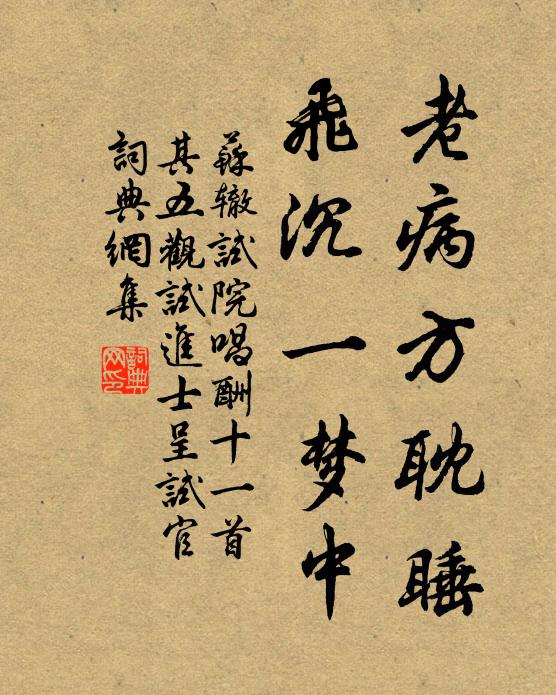 老病方耽睡
飛沉一梦中
蘇辙試院唱酬十一首
其五觀試進士呈試官
詞典網集
詞典网印